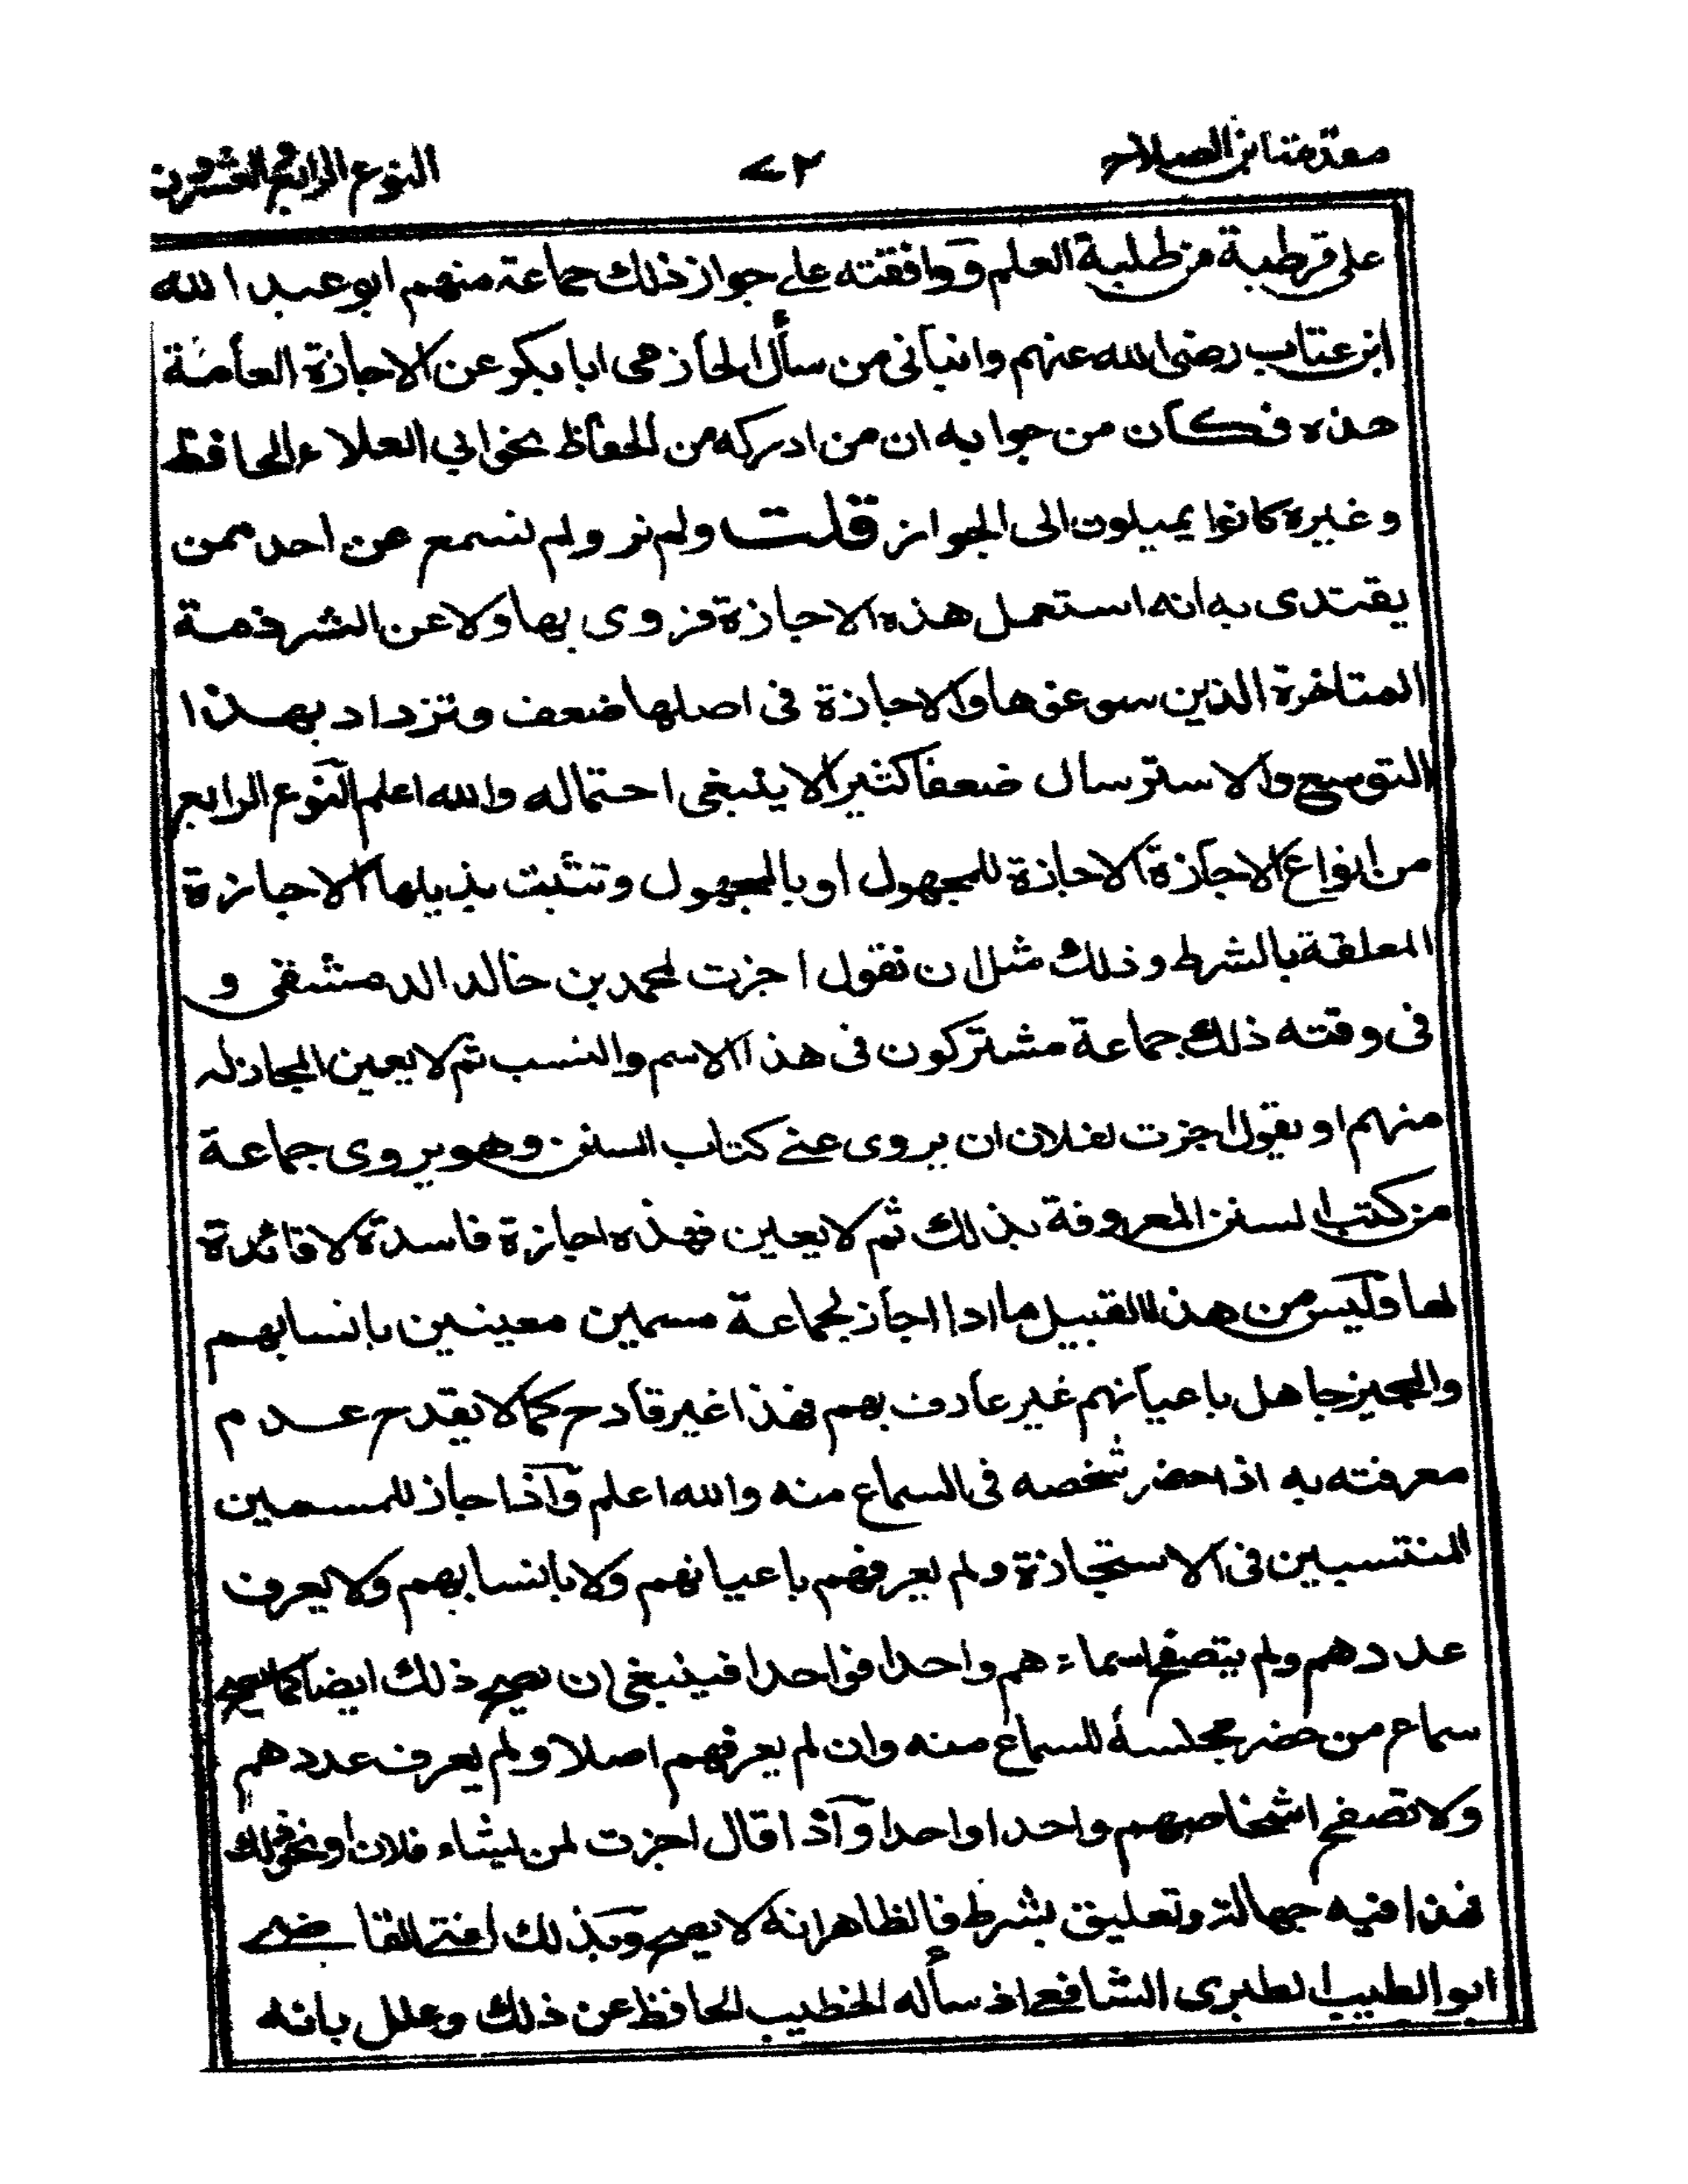 مقدمة ابن الصلاح ٧٢ النوع الرابع والعشرون
على قرطبة من طلبة العلم ووافقته على جواز ذلك جماعة منهم ابو عبد الله
ابن عتاب رضى الله عنهم وانبأنى من سأل الحازمى ابا بكر عن الاجازة العامة
هذه فكان من جوابه ان من ادركه من الحفاظ نحو ابي العلاء الحافظ
وغيره كانوا يميلون الى الجواز قلت ولم نر ولم نسمع عن احد ممن
يقتدى به انه استعمل هذه الاجازة فروى بها ولا عن الشرذمة
المتاخرة الذين سوغوها والاجازة فى اصلها ضعف وتزداد بهذا
التوسع والاسترسال ضعفا كثيرا لا ينبغى احتماله والله اعلم النوع الرابع
من انواع الاجازة الاجازة للمجهول او بالمجهول وتتشبث بذيلها الاجازة
المعلقة بالشرط وذلك مثل ان نقول اجزت لمحمد بن خالد الدمشقى و
فى وقته ذلك جماعة مشتركون فى هذا الاسم والنسب ثم لا يعين المجاز له
منهم او يقول اجزت لفلان ان يروى عنى كتاب السنن وهو يروى جماعة
من كتب السنن المعروفة بذلك ثم لا يعين فهذه اجازة فاسدة لا فائدة
لها وليس من هذا القبيل ما اذا اجاز لجماعة مسمين معينين بانسابهم
والمجيز جاهل باعيانهم غير عارف بهم فهذا غير قادح كما لا يقدح عدم
معرفته به اذا حضر شخصه فى السماع منه والله اعلم واذا اجاز للمسمين
المنتسبين فى الاستجازة ولم يعرفهم باعيانهم ولا بانسابهم ولا يعرف
عددهم ولم يتصفح اسماءهم واحدا فواحدا فينبغى ان يصح ذلك ايضا كما يصح
سماع من حضر مجلسه للسماع منه وان لم يعرفهم اصلا ولم يعرف عددهم
ولا تصفح اشخاصهم واحدا واحدا واذا قال اجزت لمن يشاء فلان او نحو ذلك
فهذا فيه جهالة وتعليق بشرط فالظاهر انه لا يصح وبذلك افتى القاضى
ابو الطيب الطبرى الشافعى اذ سأله الخطيب الحافظ عن ذلك وعلل بانه